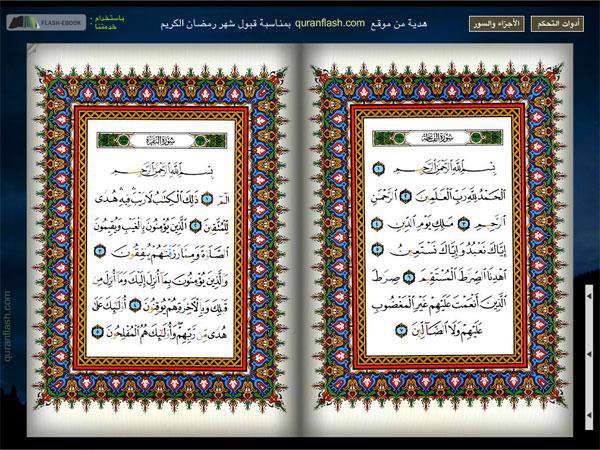 أدوات التحكم
الأجزاء والسور
هدية من موقع quranflash.com بمناسبة قبول شهر رمضان الكريم
باستخدام :
خدمتنا
FLASH-EBOOK
سورة الفاتحة
بسم الله الرحمن الرحيم ١
الحمد لله رب العلمين ٢ الرحمن
الرحيم ٣ ملك يوم الدين ٤
إياك نعبد وإياك نستعين ٥
اهدنا الصرط المستقيم ٦ صرط
الذين أنعمت عليهم غير المغضوب
عليهم ولا الضالين ٧
سورة البقرة
بسم الله الرحمن الرحيم
الم ١ ذلك الكتب لا ريب فيه هدى
للمتقين ٢ الذين يؤمنون بالغيب ويقيمون
الصلوة ومما رزقنهم ينفقون ٣
والذين يؤمنون بما أنزل إليك وما أنزل من
قبلك وبالآخرة هم يوقنون ٤ أولئك على
هدى من ربهم وأولئك هم المفلحون ٥
quranflash.com